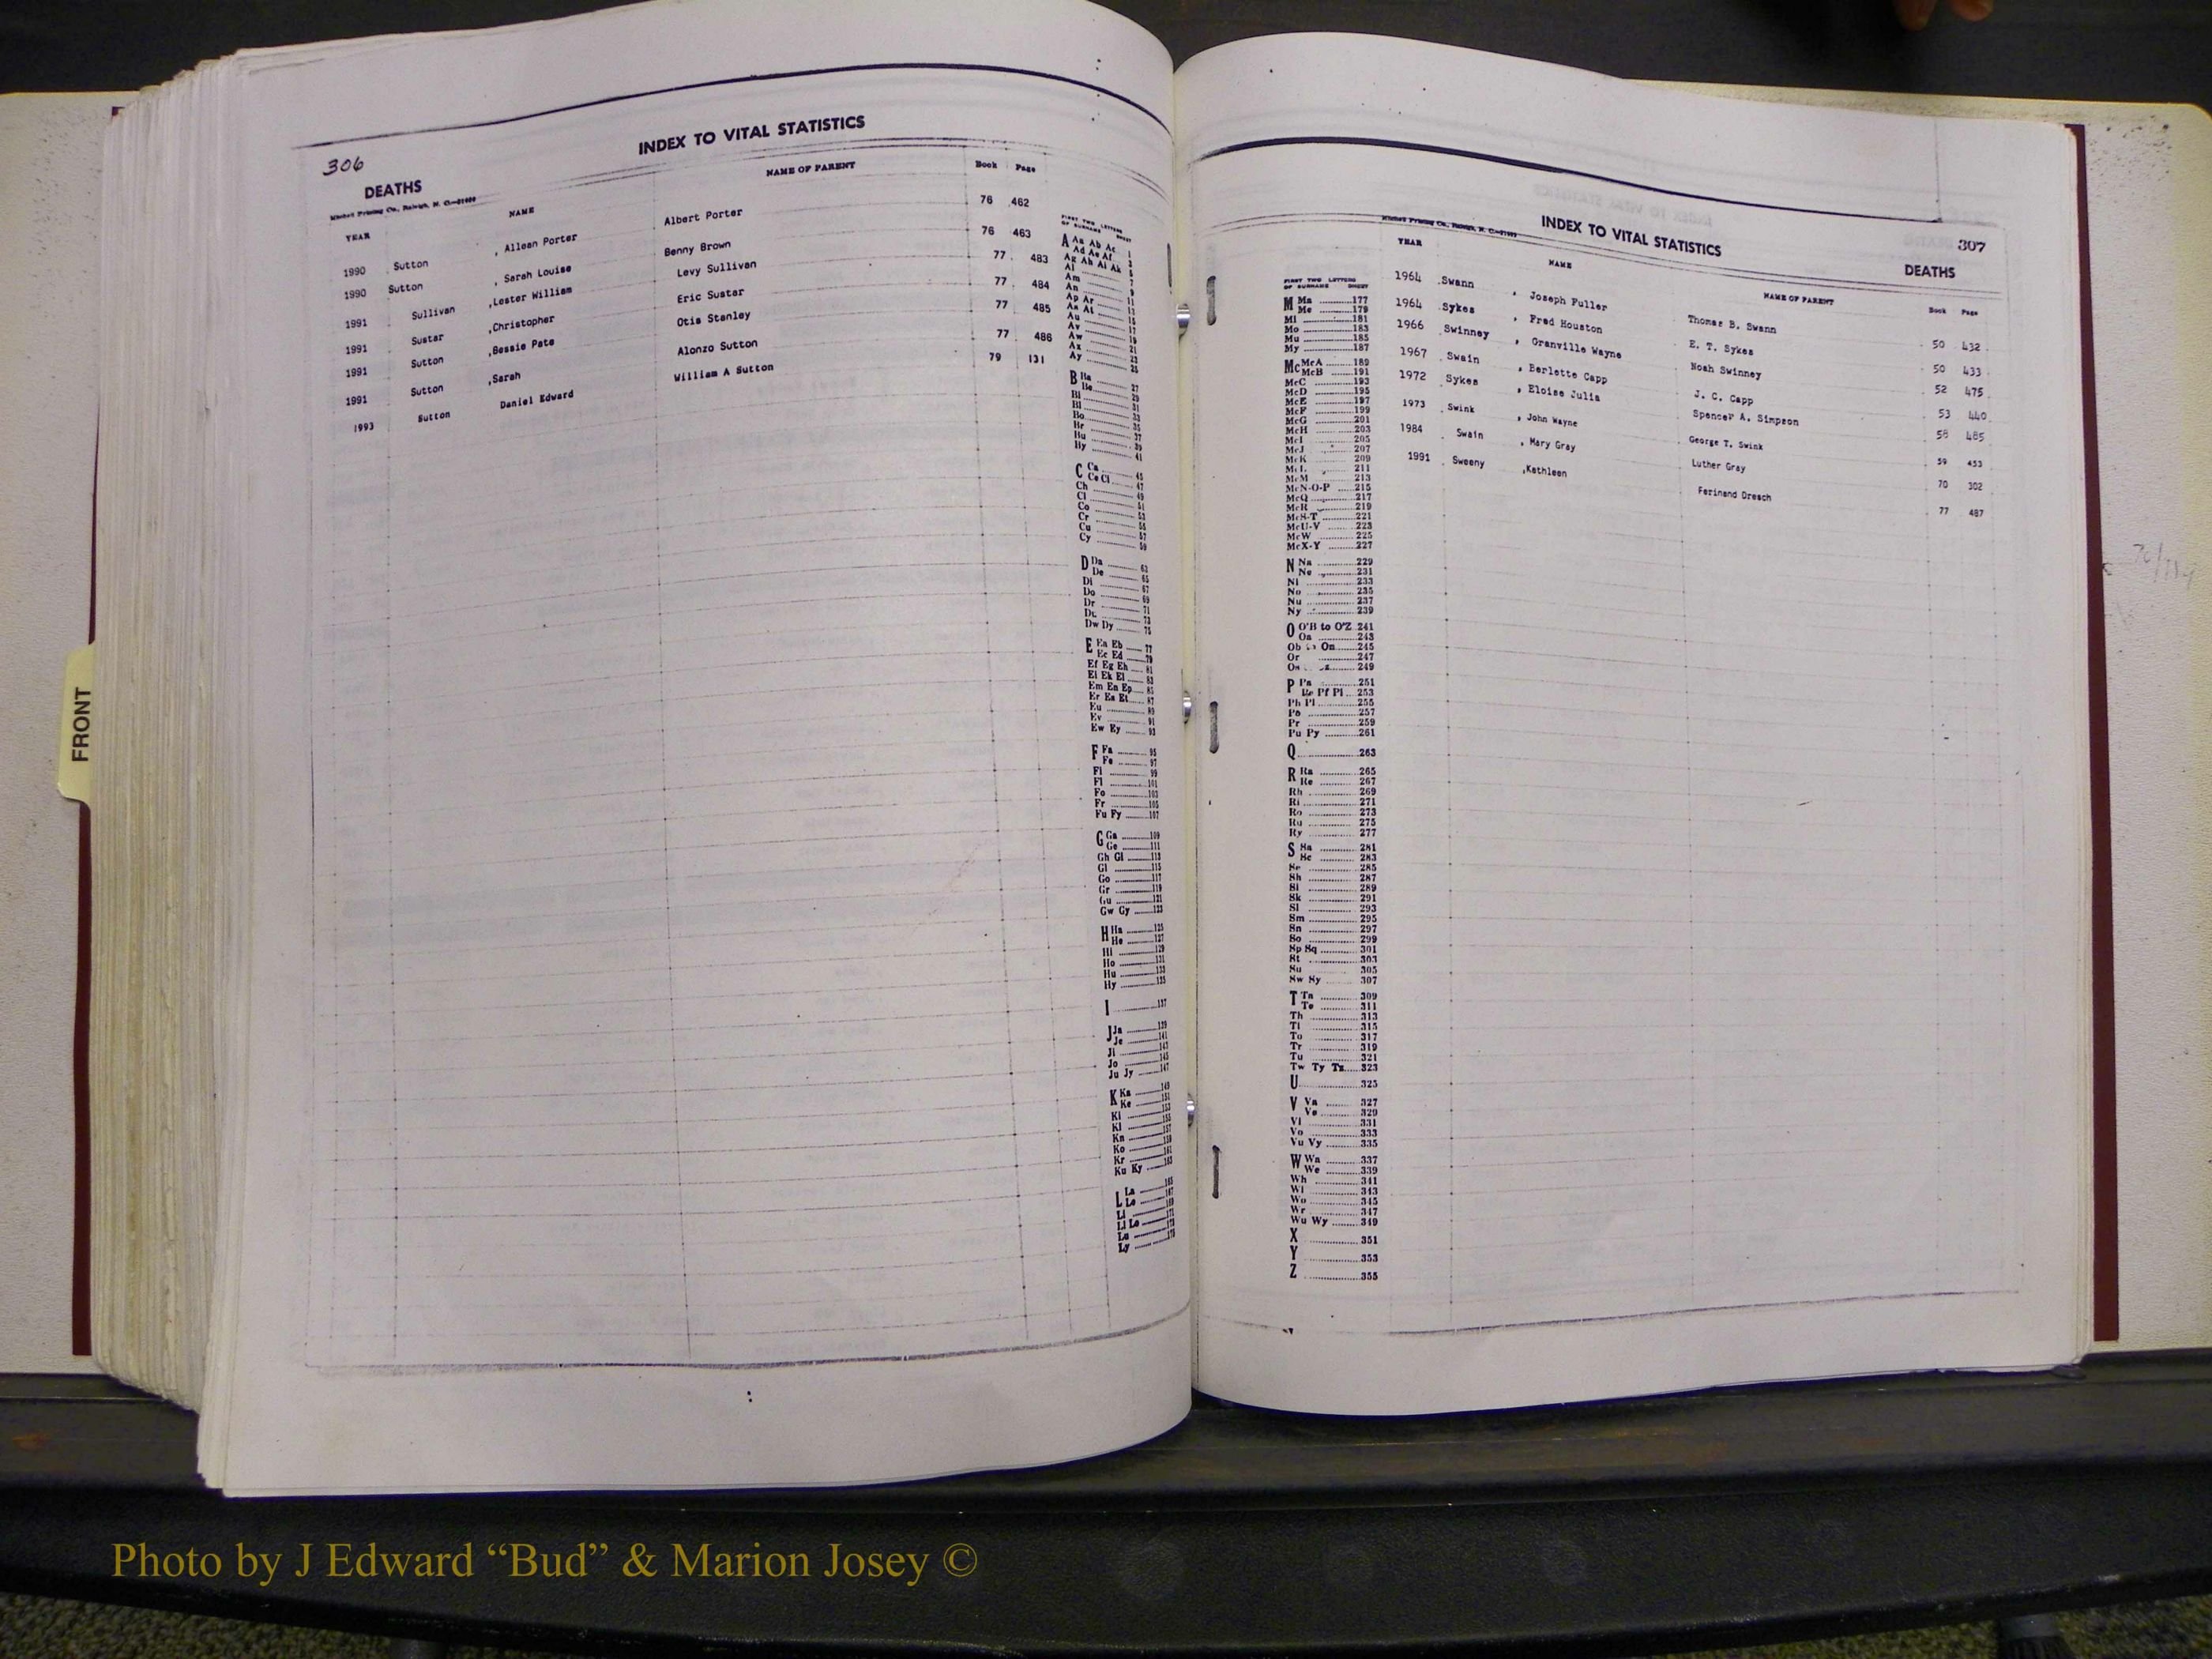 306
INDEX TO VITAL STATISTICS
DEATHS
Mitchell Printing Co., Raleigh, N. C.
YEAR NAME NAME OF PARENT Book Page
1990 Sutton , Allean Porter Albert Porter 76 462
1990 Sutton , Sarah Louise Benny Brown 76 463
1991 Sullivan ,Lester William Levy Sullivan 77 483
1991 Sustar ,Christopher Eric Sustar 77 484
1991 Sutton ,Bessie Pate Otis Stanley 77 485
1991 Sutton ,Sarah Alonzo Sutton 77 486
1993 Sutton Daniel Edward William A Sutton 79 131
FIRST TWO LETTERS
OF SURNAME SHEET
A Aa Ab Ac 1
Ad Ae Af 3
Ag Ah Ai Ak 5
Al
Am 9
An 11
Ap Ar
As At 15
Au 17
Av 19
Aw 21
Ax 23
Ay 25
B Ba 27
Be 29
Bi 31
Bl 33
Bo 35
Br 37
Bu 39
By 41
C Ca 45
Ce Ci 47
Ch 49
Cl 51
Co 53
Cr 55
Cu 57
Cy 59
D Da 63
De 65
Di 67
Do 69
Dr 71
Du 73
Dw Dy 75
E Ea Eb 77
Ec Ed 79
Ef Eg Eh 81
Ei Ek El 83
Em En Ep 85
Er Es Et 87
Eu 89
Ev 91
Ew Ey 93
F Fa 95
Fe 97
Fi 99
Fl 101
Fo 103
Fr 105
Fu Fy 107
G Ga 109
Ge 111
Gh Gi 113
Gl 115
Go 117
Gr 119
Gu 121
Gw Gy 123
H Ha 125
He 127
Hi 129
Ho 131
Hu 133
Hy 135
I 137
J Ja 139
Je 141
Ji 143
Jo 145
Ju Jy 147
K Ka 149
Ke 151
Ki 153
Kl 155
Kn 157
Ko 159
Kr 161
Ku Ky 163
L La 165
Le 167
Li 169
Ll Lo 171
Lu 173
Ly
Mitchell Printing Co., Raleigh, N. C.
INDEX TO VITAL STATISTICS
307
DEATHS
YEAR NAME NAME OF PARENT Book Page
1964 Swann , Joseph Fuller Thomas B. Swann 50 432
1964 Sykes , Fred Houston E. T. Sykes 50 433
1966 Swinney , Granville Wayne Noah Swinney 52 475
1967 Swain , Berlette Capp J. C. Capp 53 440
1972 Sykes , Eloise Julia Spencer A. Simpson 58 485
1973 Swink , John Wayne George T. Swink 59 453
1984 Swain , Mary Gray Luther Gray 70 302
1991 Sweeny ,Kathleen Ferinand Dresch 77 487
FIRST TWO LETTERS
OF SURNAME SHEET
M Ma 177
Me 179
Mi 181
Mo 183
Mu 185
My 187
Mc McA 189
McB 191
McC 193
McD 195
McE 197
McF 199
McG 201
McH 203
McI 205
McJ 207
McK 209
McL 211
McM 213
McN-O-P 215
McQ 217
McR 219
McS-T 221
McU-V 223
McW 225
McX-Y 227
N Na 229
Ne 231
Ni 233
No 235
Nu 237
Ny 239
O O'B to O'Z 241
Oa 243
Ob to On 245
Or 247
Os 249
P Pa 251
Pe Pf Pi 253
Ph Pl 255
Po 257
Pr 259
Pu Py 261
Q 263
R Ra 265
Re 267
Rh 269
Ri 271
Ro 273
Ru 275
Ry 277
S Sa 281
Sc 283
Se 285
Sh 287
Si 289
Sk 291
Sl 293
Sm 295
Sn 297
So 299
Sp Sq 301
St 303
Su 305
Sw Sy 307
T Ta 309
Te 311
Th 313
Ti 315
To 317
Tr 319
Tu 321
Tw Ty Tz 323
U 325
V Va 327
Ve 329
Vi 331
Vo 333
Vu Vy 335
W Wa 337
We 339
Wh 341
Wi 343
Wo 345
Wr 347
Wu Wy 349
X 351
Y 353
Z 355
FRONT
Photo by J Edward “Bud” & Marion Josey ©